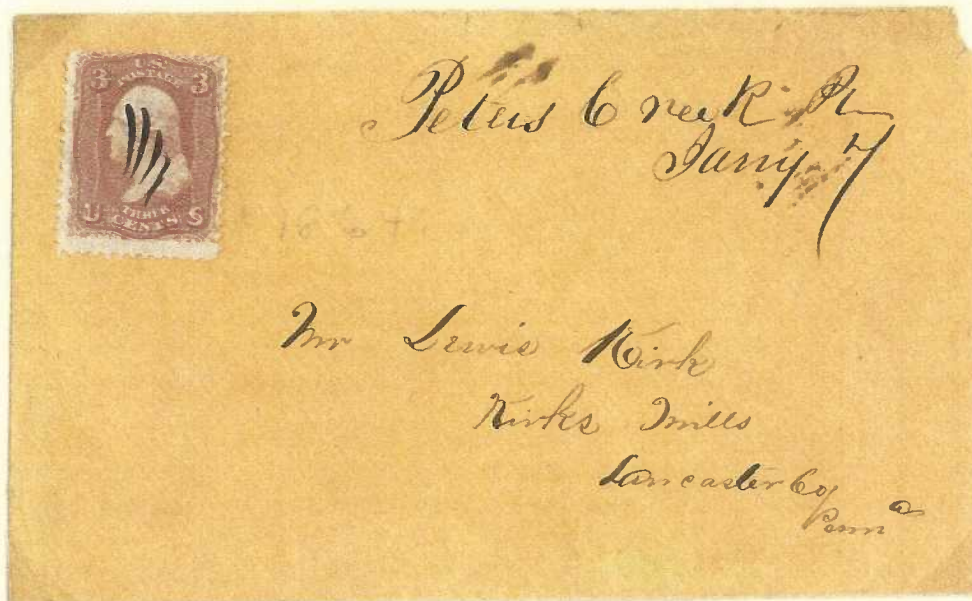 3 U.S. 3
POSTAGE
U THREE S
CENTS
Peters Creek Pa
Jany 7
Mr Lewis Kirk
Kirks Mills
Lancaster Co
Penna